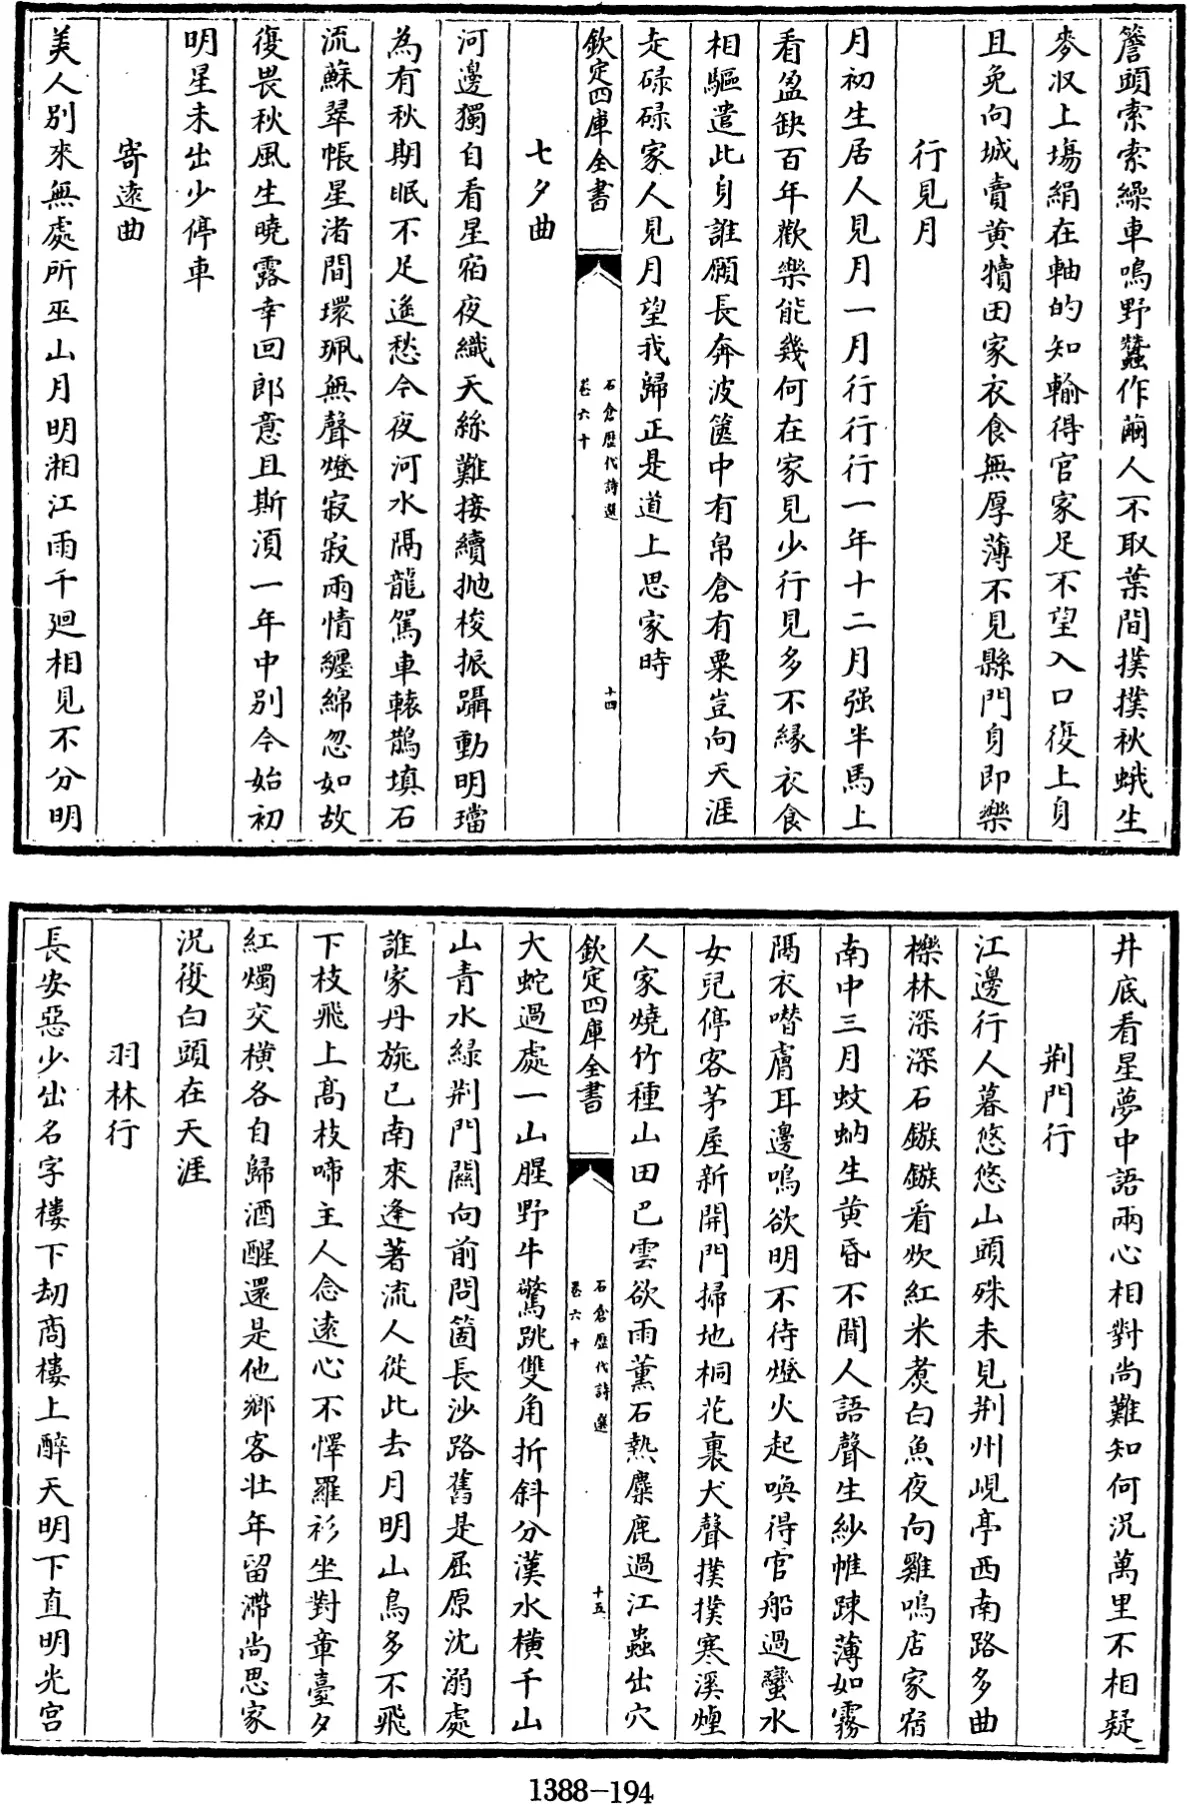 簷頭索索繰車鳴野蠶作繭人不取葉間撲撲秋蛾生
麥収上場絹在軸的知輸得官家足不望入口復上身
且免向城賣黃犢田家衣食無厚薄不見縣門身即樂
行見月
月初生居人見月一月行行行一年十二月强半馬上
看盈缺百年歡樂能幾何在家見少行見多不緣衣食
相驅遣此身誰願長奔波篋中有帛倉有粟豈向天涯
走碌碌家人見月望我歸正是道上思家時
欽定四庫全書
石倉歷代詩選
卷六十
十四
七夕曲
河邊獨自看星宿夜織天絲難接續抛梭振躡動明璫
為有秋期眠不足遙愁今夜河水隔龍駕車轅鵲填石
流蘇翠帳星渚間環珮無聲燈寂寂兩情纏綿忽如故
復畏秋風生曉露幸回郎意且斯湏一年中別今始初
明星未出少停車
寄逺曲
美人別來無處所巫山月明湘江雨千廻相見不分明
井底看星夢中語兩心相對尚難知何況萬里不相疑
荆門行
江邊行人暮悠悠山頭殊未見荆州峴亭西南路多曲
櫟林深深石鏃鏃看炊紅米煑白魚夜向雞鳴店家宿
南中三月蚊蚋生黄昏不聞人語聲生紗帷踈薄如霧
隔衣噆膚耳邊鳴欲明不待燈火起喚得官船過蠻水
女兒停客茅屋新開門掃地桐花裏犬聲撲撲寒溪煙
人家燒竹種山田巴雲欲雨薫石熱麋鹿過江蟲出穴
欽定四庫全書
石倉歷代詩選
卷六十
十五
大蛇過處一山腥野牛驚跳雙角折斜分漢水横千山
山青水緑荆門關向前問箇長沙路舊是屈原沈溺處
誰家丹旐已南來逢著流人從此去月明山鳥多不飛
下枝飛上高枝啼主人念逺心不懌羅衫坐對章臺夕
紅燭交横各自歸酒醒還是他鄉客壯年留滯尚思家
況復白頭在天涯
羽林行
長安惡少出名字樓下劫商樓上醉天明下直明光宫
1388-194